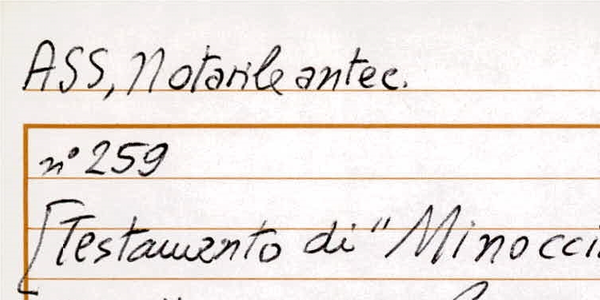 ASS, Notarile antec.
n° 259
[Testamento di "Minocci